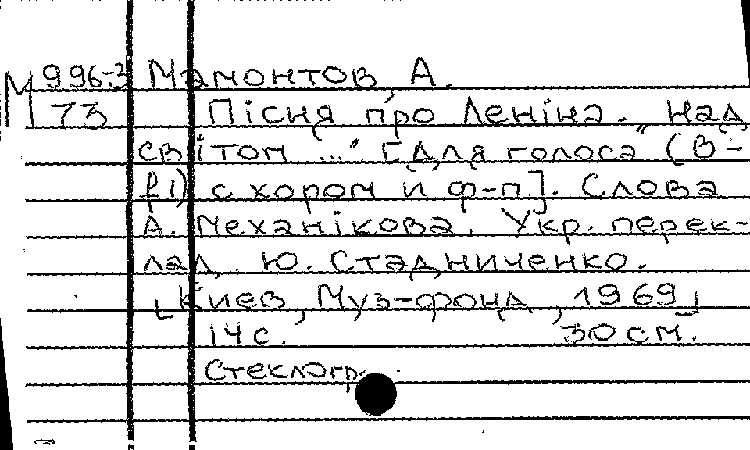 996-3 Мамонтов, А.
М 73 Пісня про Леніна. "Над
світом ..." [Для голоса (B-
f1) с хором и ф-п]. Слова
А. Механікова. Укр. перек-
лад Ю. Стадниченко.
[Киев, Муз-фонд, 1969]
14 с. 30 см.
Стеклогр.